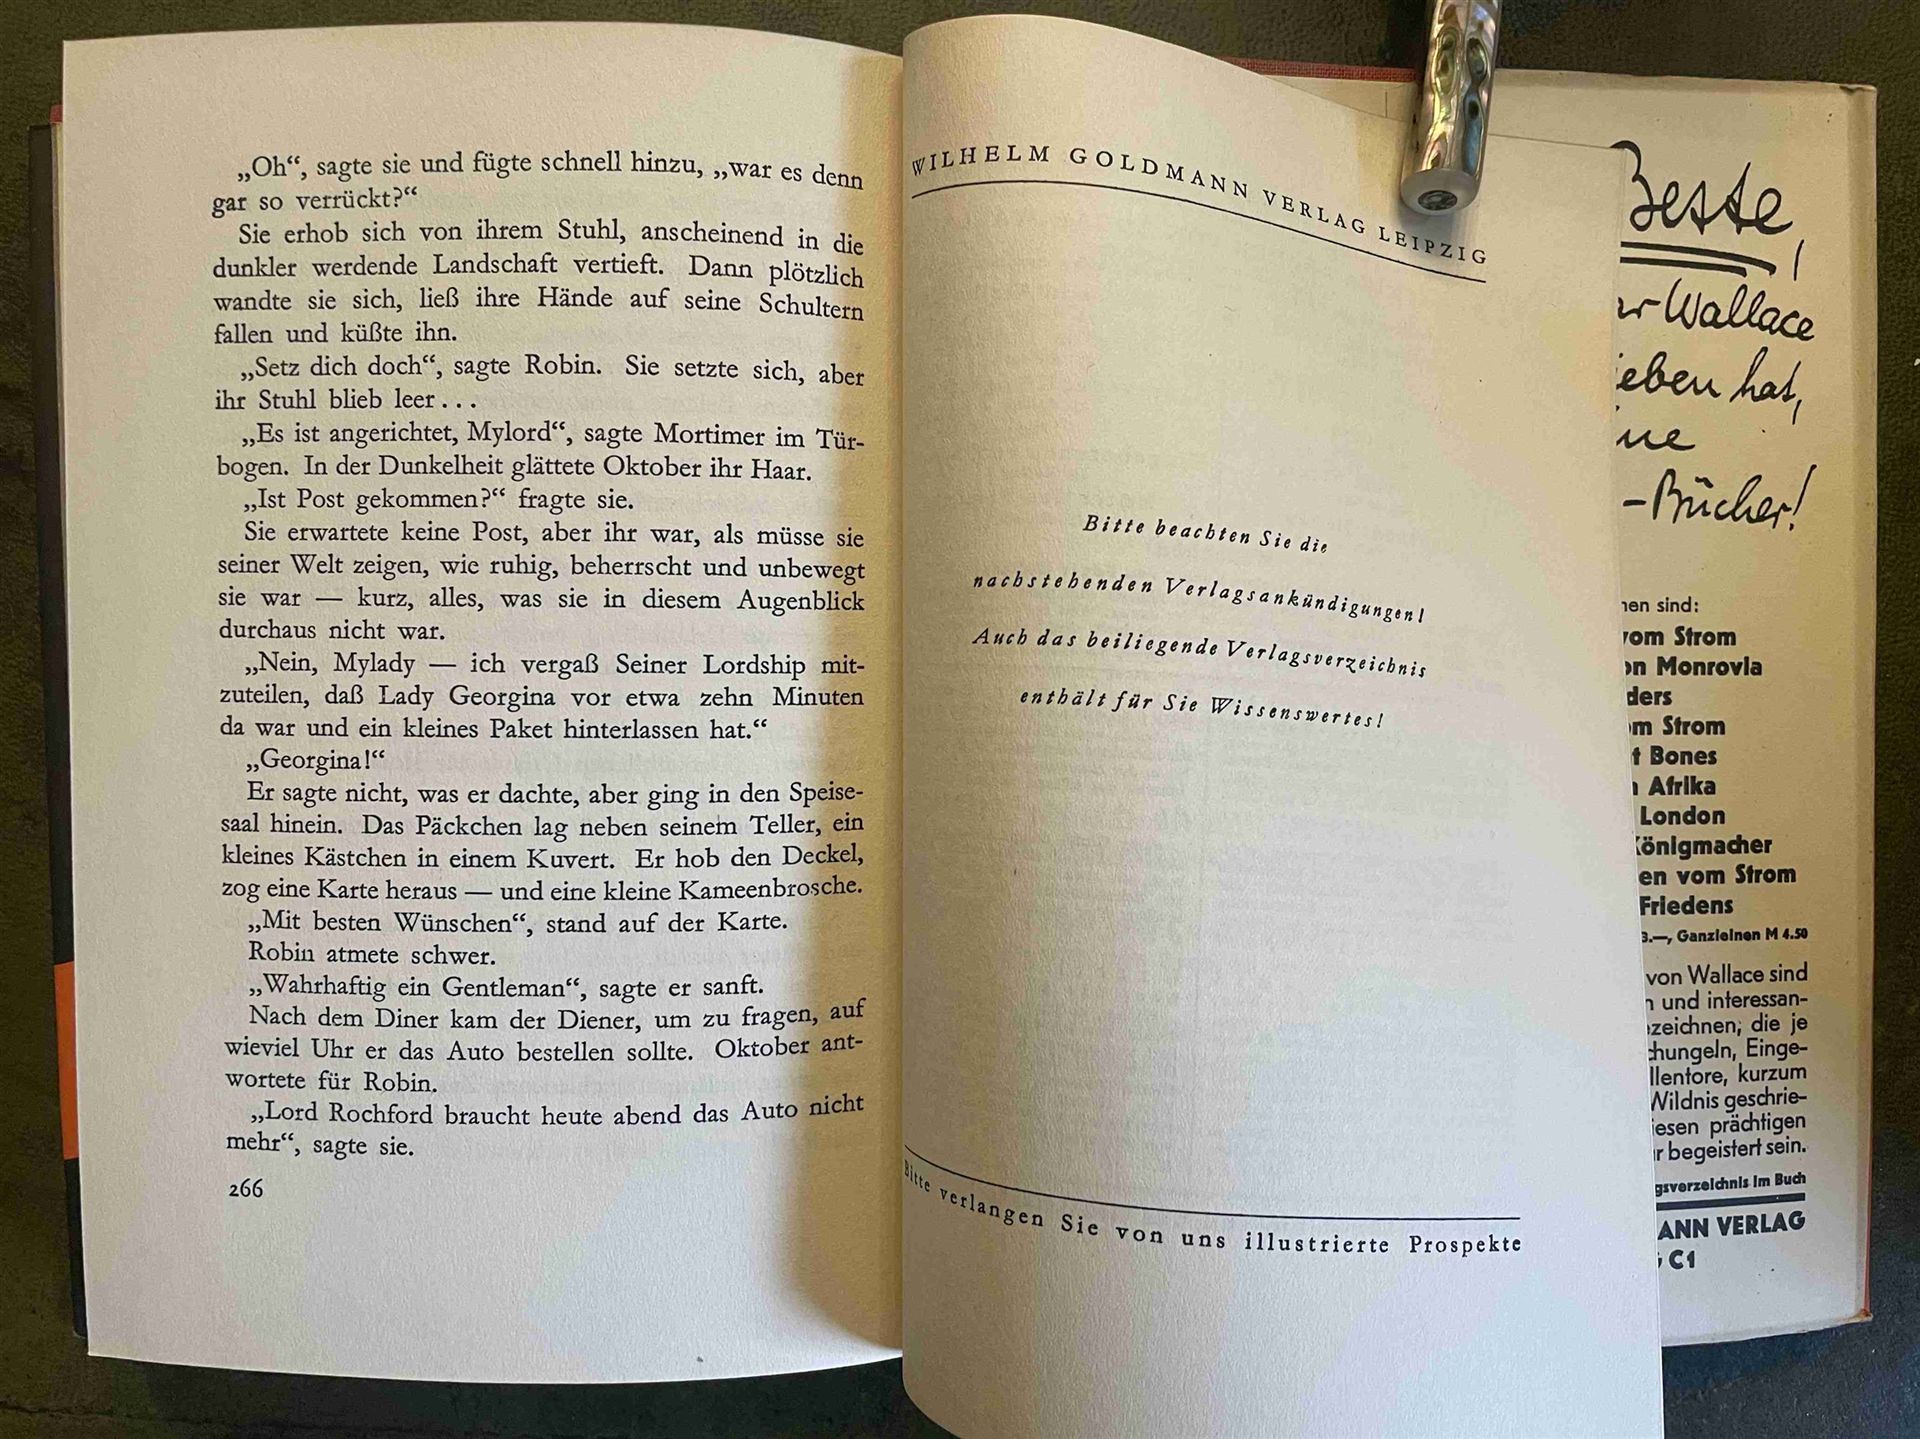 „Oh“, sagte sie und fügte schnell hinzu, „war es denn
gar so verrückt?“
Sie erhob sich von ihrem Stuhl, anscheinend in die
dunkler werdende Landschaft vertieft. Dann plötzlich
wandte sie sich, ließ ihre Hände auf seine Schultern
fallen und küßte ihn.
„Setz dich doch“, sagte Robin. Sie setzte sich, aber
ihr Stuhl blieb leer...
„Es ist angerichtet, Mylord“, sagte Mortimer im Tür-
bogen. In der Dunkelheit glättete Oktober ihr Haar.
„Ist Post gekommen?“ fragte sie.
Sie erwartete keine Post, aber ihr war, als müsse sie
seiner Welt zeigen, wie ruhig, beherrscht und unbewegt
sie war — kurz, alles, was sie in diesem Augenblick
durchaus nicht war.
„Nein, Mylady — ich vergaß Seiner Lordship mit-
zuteilen, daß Lady Georgina vor etwa zehn Minuten
da war und ein kleines Paket hinterlassen hat.“
„Georgina!“
Er sagte nicht, was er dachte, aber ging in den Speise-
saal hinein. Das Päckchen lag neben seinem Teller, ein
kleines Kästchen in einem Kuvert. Er hob den Deckel,
zog eine Karte heraus — und eine kleine Kameenbrosche.
„Mit besten Wünschen“, stand auf der Karte.
Robin atmete schwer.
„Wahrhaftig ein Gentleman“, sagte er sanft.
Nach dem Diner kam der Diener, um zu fragen, auf
wieviel Uhr er das Auto bestellen sollte. Oktober ant-
wortete für Robin.
„Lord Rochford braucht heute abend das Auto nicht
mehr“, sagte sie.
266
WILHELM GOLDMANN VERLAG LEIPZIG
Bitte beachten Sie die
nachstehenden Verlagsankündigungen!
Auch das beiliegende Verlagsverzeichnis
enthält für Sie Wissenswertes!
Bitte verlangen Sie von uns illustrierte Prospekte
Beste,
Wallace
hat,
-Bücher!
sind:
vom Strom
Monrovia
Strom
Bones
Afrika
London
Königmacher
vom Strom
Friedens
3.—, Ganzleinen M 4.50
von Wallace sind
und interessan-
zeichnen; die je
Einge-
kurzum
Wildnis geschrie-
prächtigen
begeistert sein.
im Buch
VERLAG
C1